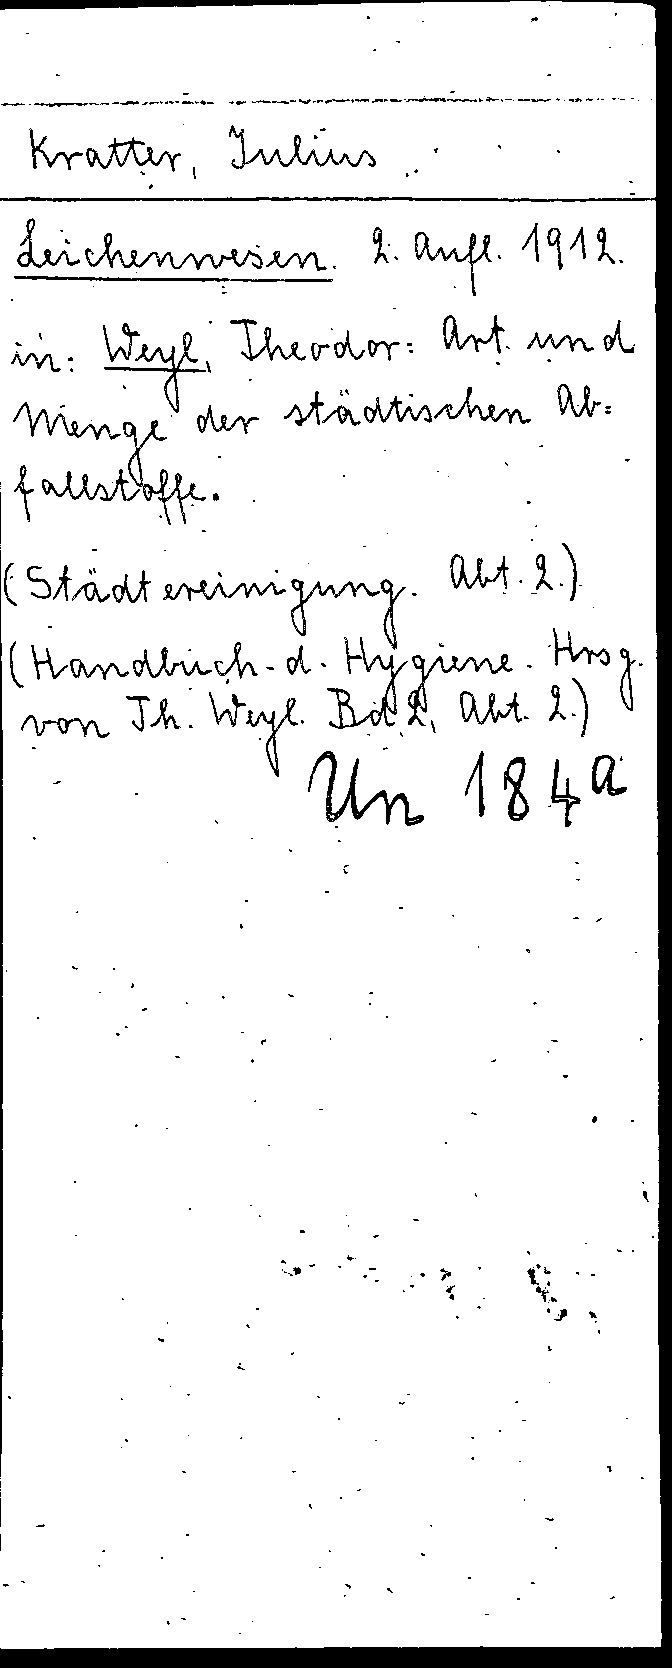 Kratter, Julius
Leichenwesen. 2. Aufl. 1912.
in: Weyl, Theodor: Art und
Menge der städtischen Ab=
fallstoffe.
(Städtereinigung. Abt. 2.)
(Handbuch d. Hygiene. Hrsg.
von Th. Weyl. Bd 2, Abt. 2.)
Un 184a